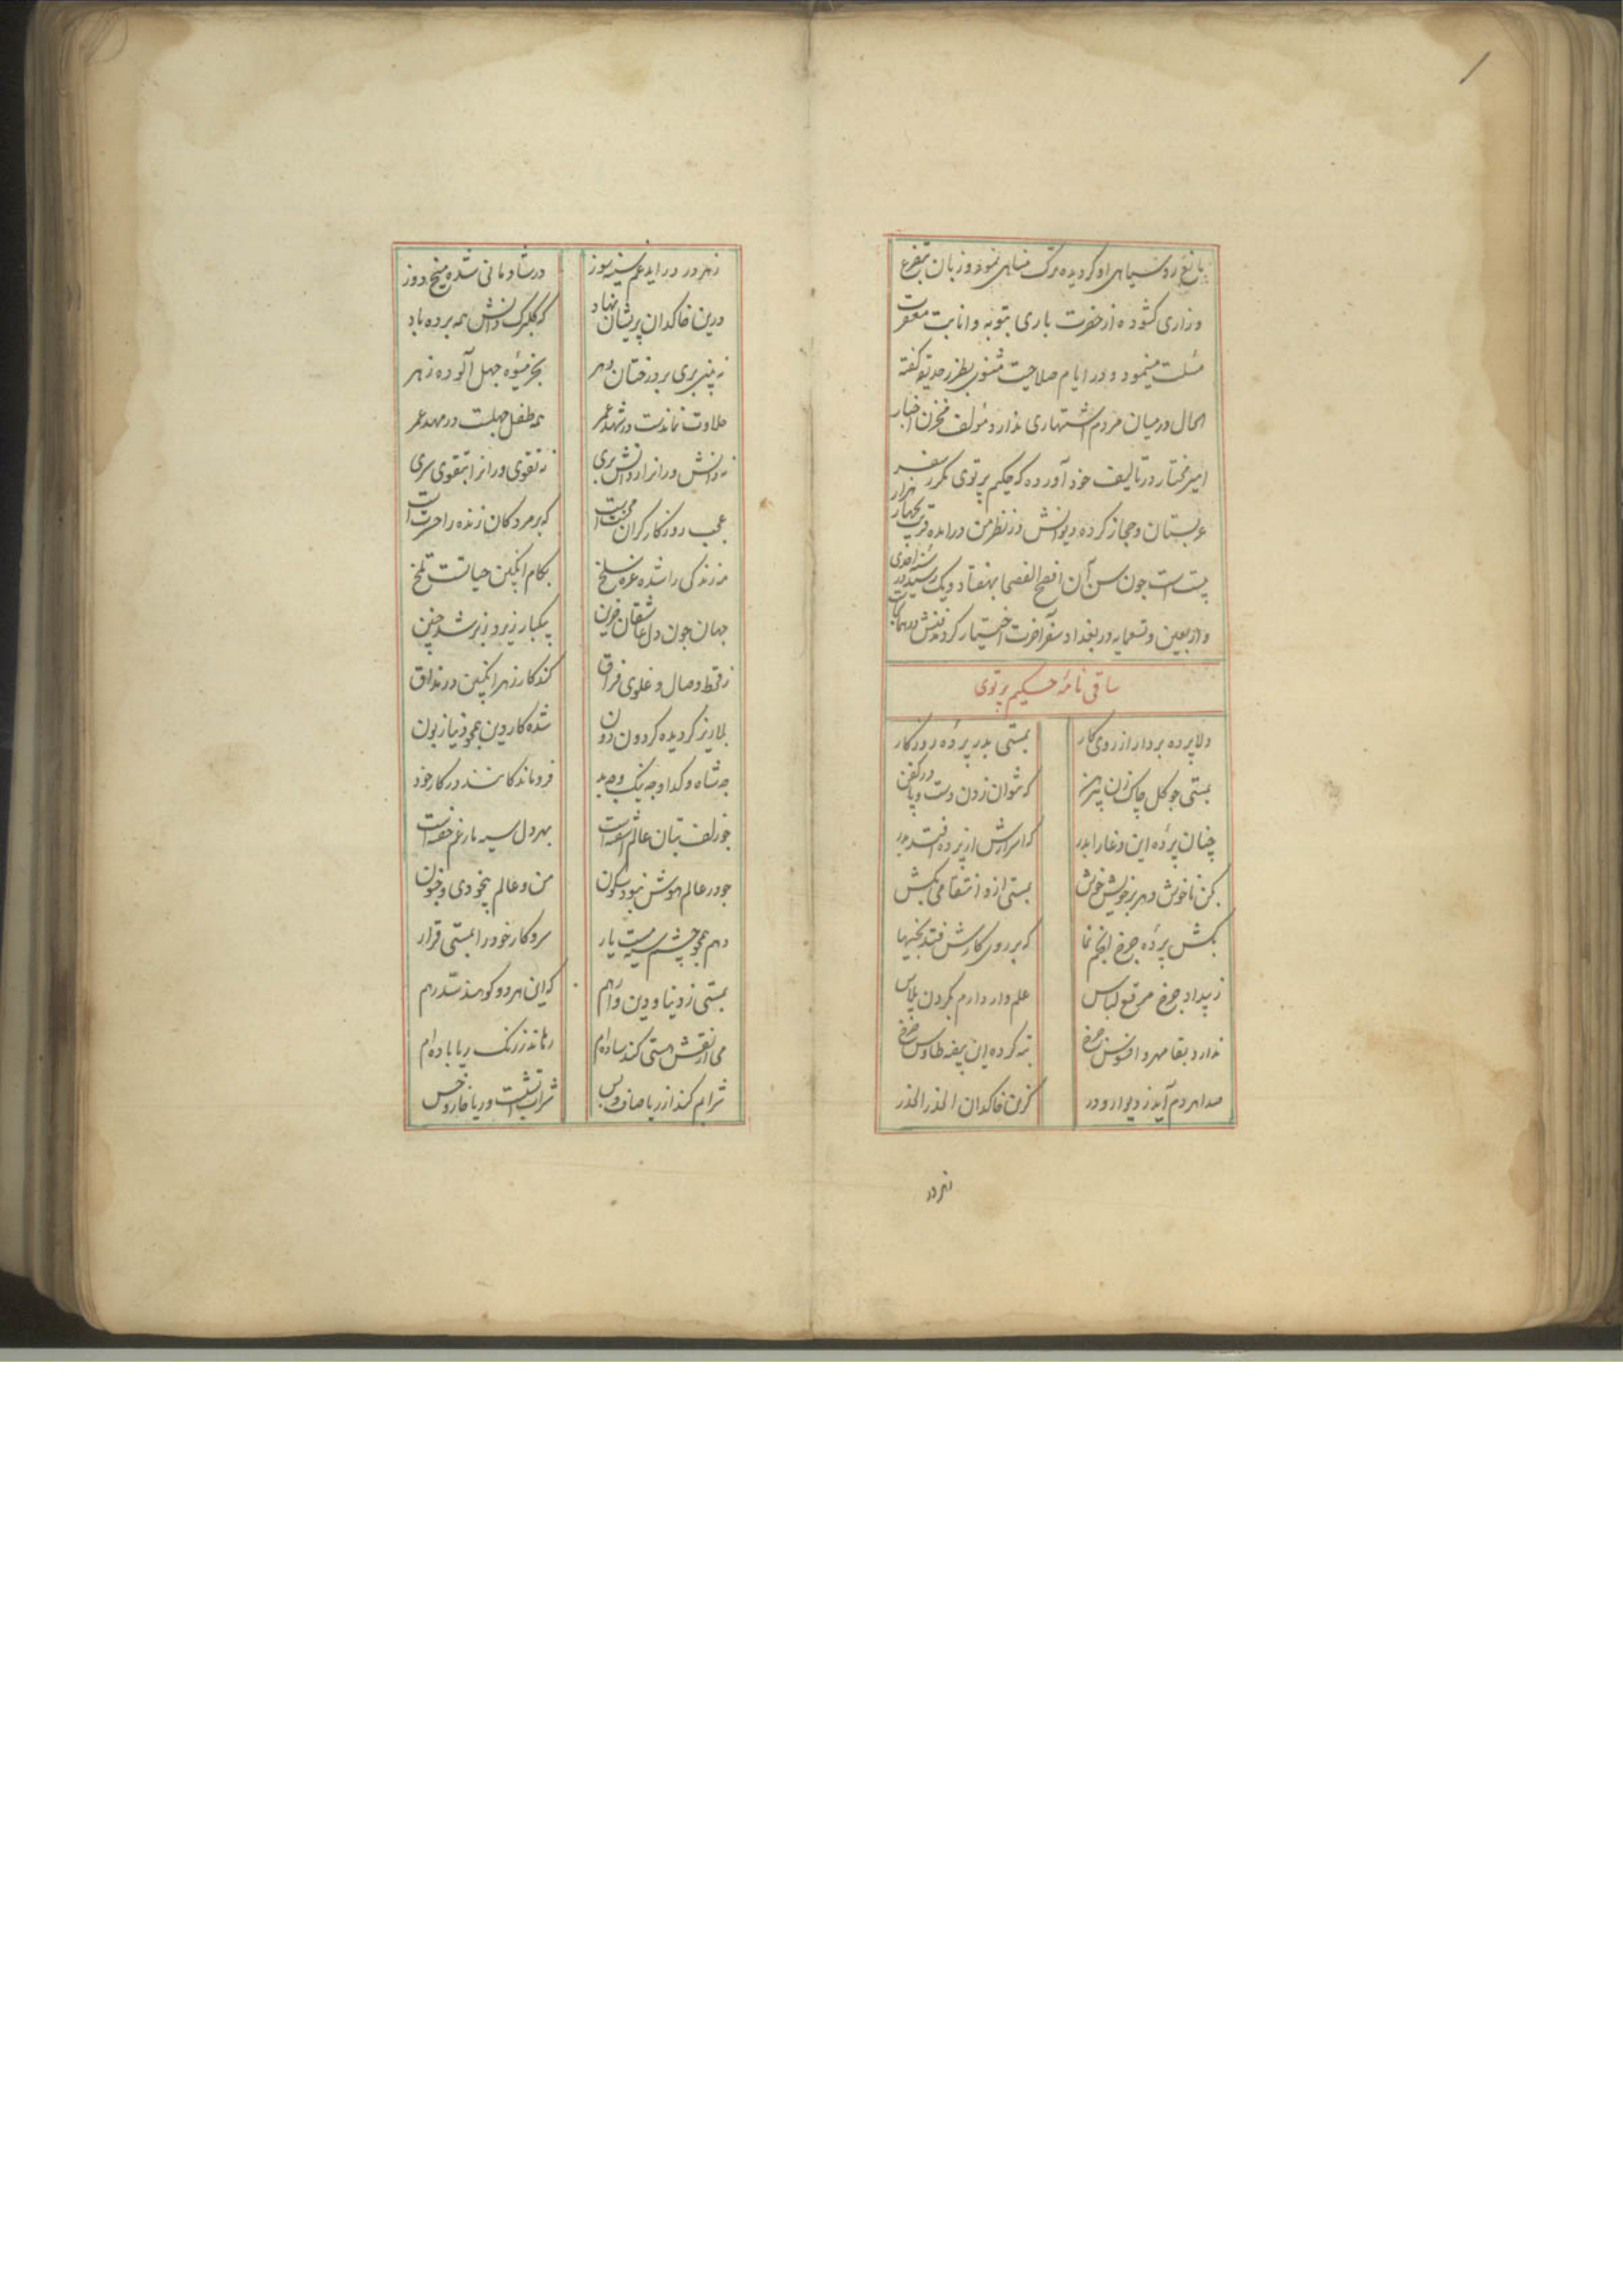 مانع رو سیاهی او کردیده ترک مناهی نمود و زبان بتضرع
وزاری کشوده از حضرت باری بتوبه و انابت مغفرت
مسئلت مینمود و در ایام صلاحیت مثنوی بطرز حدیقه کفته
الحال درمیان مردم اشتهاری ندارد مؤلف مخزن اخبار
امیر مختار در تالیف خود آورده که حکیم پرتوی مکرر سفر
عربستان و حجاز کرده دیوانش در نظر من درآمده قریب بچهار هزار
بیت است چون سن آن افصح الفصحا بهفتاد و یک رسید در سنه احدی
و اربعین و تسعمایه در بغداد سفر آخرت اختیار کرد مدفنش در همان
ساقی نامهٔ حکیم پرتوی
دلا پرده بردار از روی کار بمستی بدر پردهٔ روزکار
بمستی چو کل چاک زن پیرهن که نتوان زدن دست و پا در کفن
چنان پردهٔ این دغا را بدر که اسرارش از پرده افتد بدر
بکن ناخوش دهر بر خویش خوش بمستی ازو انتقامی بکش
بکش پردهٔ چرخ انجم نما که بر روی کارش فتد بخیها
ز بیداد چرخ مرقع لباس علم وار دارم بکردن پلاس
ندارد بقا مهر و افسوس چرخ تبه کرده این بیضه طاوس چرخ
صدا هر دم آید ز دیوار و در کزین خاکدان الحذر الحذر
زهر در
زهر در درآید غم سینه سوز در شادمانی شده میخ دوز
درین خاکدان پریشان نهاد که کلبرک دانش همه برده باد
نه بینی بری بر درختان دهر بجز میوهٔ جهل آلوده زهر
حلاوت نماندست در شهد عمر همه طفل جهلست در مهد عمر
نه دانش وران را ز دانش بری نه تقوی وران را بتقوی سری
عجب روزکار کران محنت است که بر مردکان زنده را حسرت است
مه زندکی را شده غره سلخ بکام انکبین حیاتست تلخ
جهان چون دل عاشقان حزین بیکبار زیر و زبر شد چنین
ز قحط وصال و غلوی فراق کند کار زهر انکبین در مذاق
بلا ریز کردیده کردون دون شده کار دین همچو دنیا زبون
چه شاه و کدا و چه نیک و چه بد فروماندکانند در کار خود
چو زلف بتان عالم آشفته است بهر دل سیه مار غم خفته است
چو در عالم هوش نبود سکون من و عالم بیخودی و جنون
دهم همچو چشم سیه مست یار سر و کار خود را بمستی قرار
بمستی ز دنیا و دین وارهم که این هر دو کوهند سد رهم
می از نقش هستی کند ساده ام رهاند ز رنک ریا باده ام
شرابم کند از ریا صاف و بس شراب آتشست و ریا خار و خس